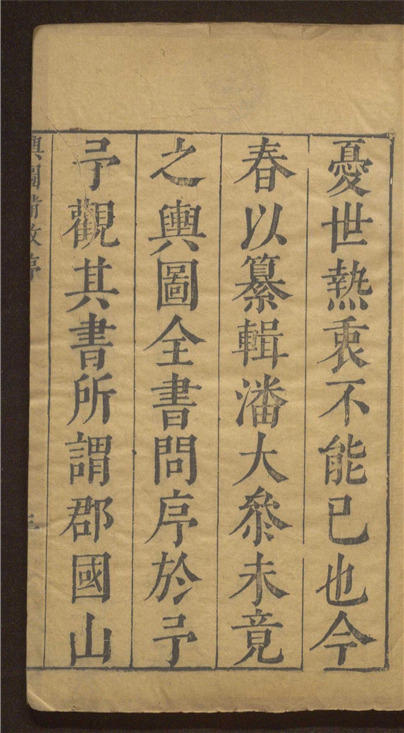 憂世熱衷不能已也今
春以纂輯潘大叅未竟
之輿圖全書問序於予
予觀其書所謂郡國山